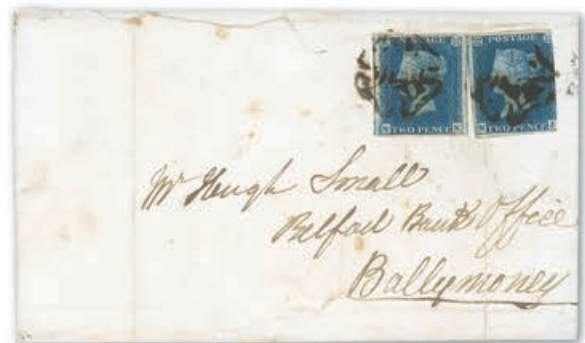 POSTAGE
TWO PENCE
POSTAGE
TWO PENCE
Mr Hugh Small
Belfast Bank Office
Ballymoney